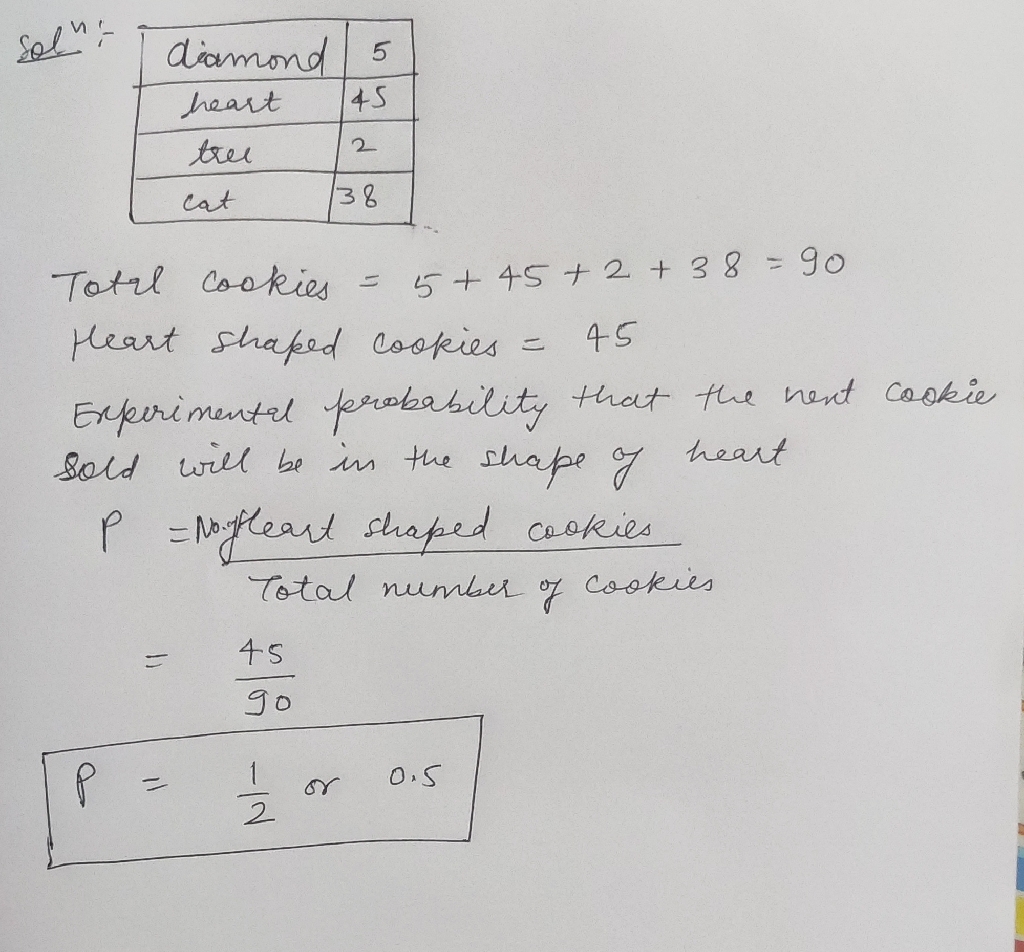 Solⁿ:-
diamond 5
heart 45
tree 2
cat 38
Total cookies = 5 + 45 + 2 + 38 = 90
Heart shaped cookies = 45
Experimental probability that the next cookie
sold will be in the shape of heart
P = No. of Heart shaped cookies
Total number of cookies
= 45
90
P = 1/2 or 0.5